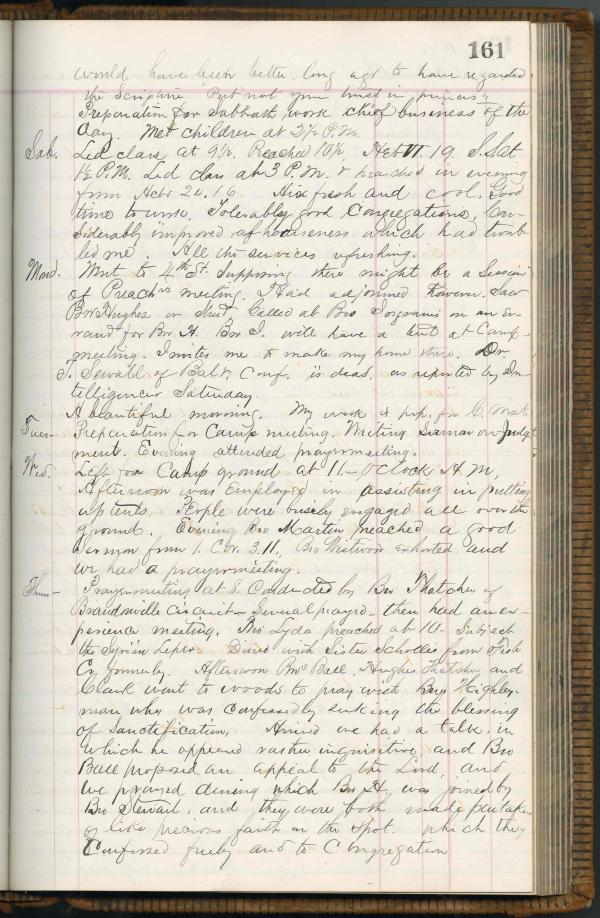 161
would have been better long ago to have regarded
the Scripture "Put not your trust in princes"
Preparation for Sabbath work chief business of the
day. Met children at 2 1/2 P.M.
Sab. Led class at 9 1/2. Preached 10 1/2, Heb VI. 19. S. Sch
1 1/2 P.M. Led class at 3 P.M. & preached in evening
from Acts 24.16. Air fresh and cool. Good
time to work. Tolerably good Congregations. Con-
siderably improved of hoarseness which had troub-
led me. All the services refreshing.
Mond. Went to 4th St. supposing there might be a Session
of Preachrs meeting. Had adjourned however. Saw
Bro Hughes Called at Bro on an er-
rand for Bro H. Bro I. will have a tent at Camp-
meeting. Invites me to make my home there. Dr.
T. Sewall of Balt. Conf. is dead, as reported by In-
telligencer Saturday.
A beautiful morning. My work is prep. for C. Meet
Tues- Preparation for Camp meeting. Writing Sermon on Judg-
ment. Evening attended prayermeeting.
Wed. Left for Camp ground at 11- O'clock A.M.
Afternoon was Employed in assisting in putting
up tents. People were busily engaged all over the
ground. Evening Bro Martin preached a good
sermon from 1. Cor. 3.11. Bro Westwood exhorted and
we had a prayermeeting.
Thurs- Prayermeeting at 8. Conducted by Bro Thatcher of
Brandonville Circuit- Several prayed- then had an ex-
perience meeting. Bro Lyda preached at 10- Subject
the Syrian Leper. Dined with Sister Scholles from Fish
Cr, formerly. Afternoon Bros Ball, Hughes Thatcher and
Clark went to woods to pray with Bro Highley-
man who was confessedly seeking the blessing
of Sanctification. Arrived we had a talk, in
which he appeared rather inquisitive and Bro
Ball proposed an appeal to the Lord, and
we prayed during which Bro H. was joined by
Bro Stewart, and they were both made partakers
of like precious faith on the spot. which they
Confessed freely and to Congregation